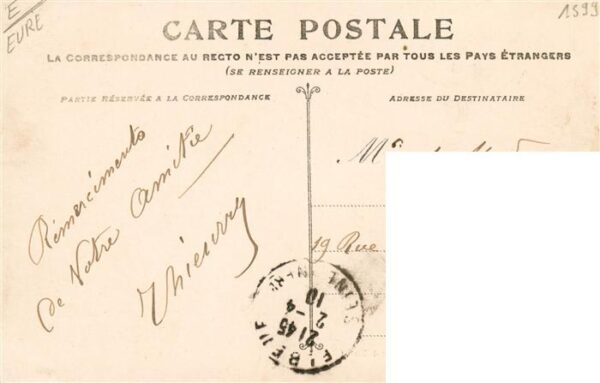 E
EURE
1599
CARTE POSTALE
LA CORRESPONDANCE AU RECTO N'EST PAS ACCEPTÉE PAR TOUS LES PAYS ÉTRANGERS
(SE RENSEIGNER A LA POSTE)
PARTIE RÉSERVÉE A LA CORRESPONDANCE
ADRESSE DU DESTINATAIRE
Rémerciments
de Votre Amitié
19 Rue
ELBEUF
21 45
2 - 4
10
SEINE INFRE